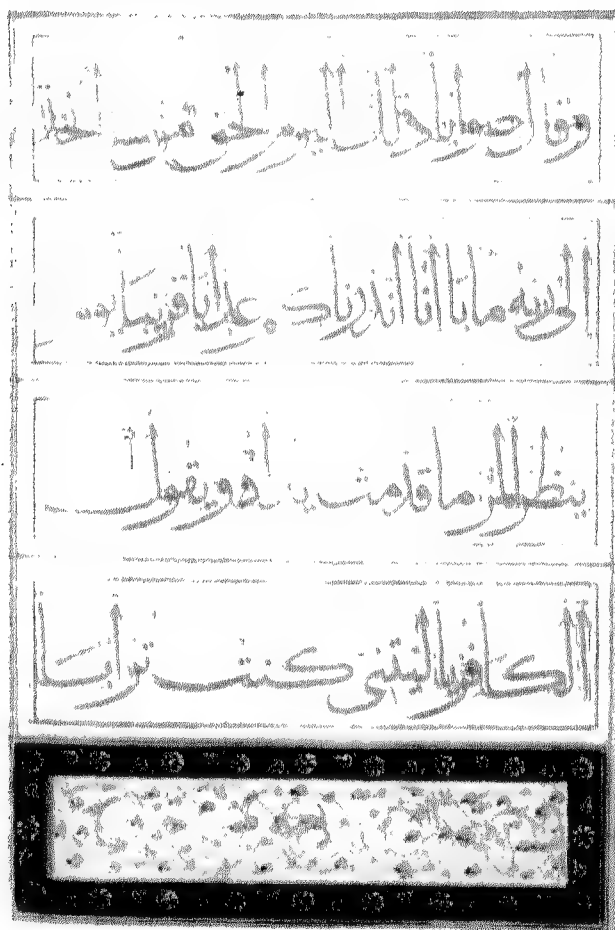 وقال صوابا ذلك اليوم الحق فمن شاء اتخذ
الى ربه مابا انا انذرناكم عذابا قريبا يوم
ينظر المر ما قدمت يداه ويقول
الكافر ياليتنى كنت ترابا